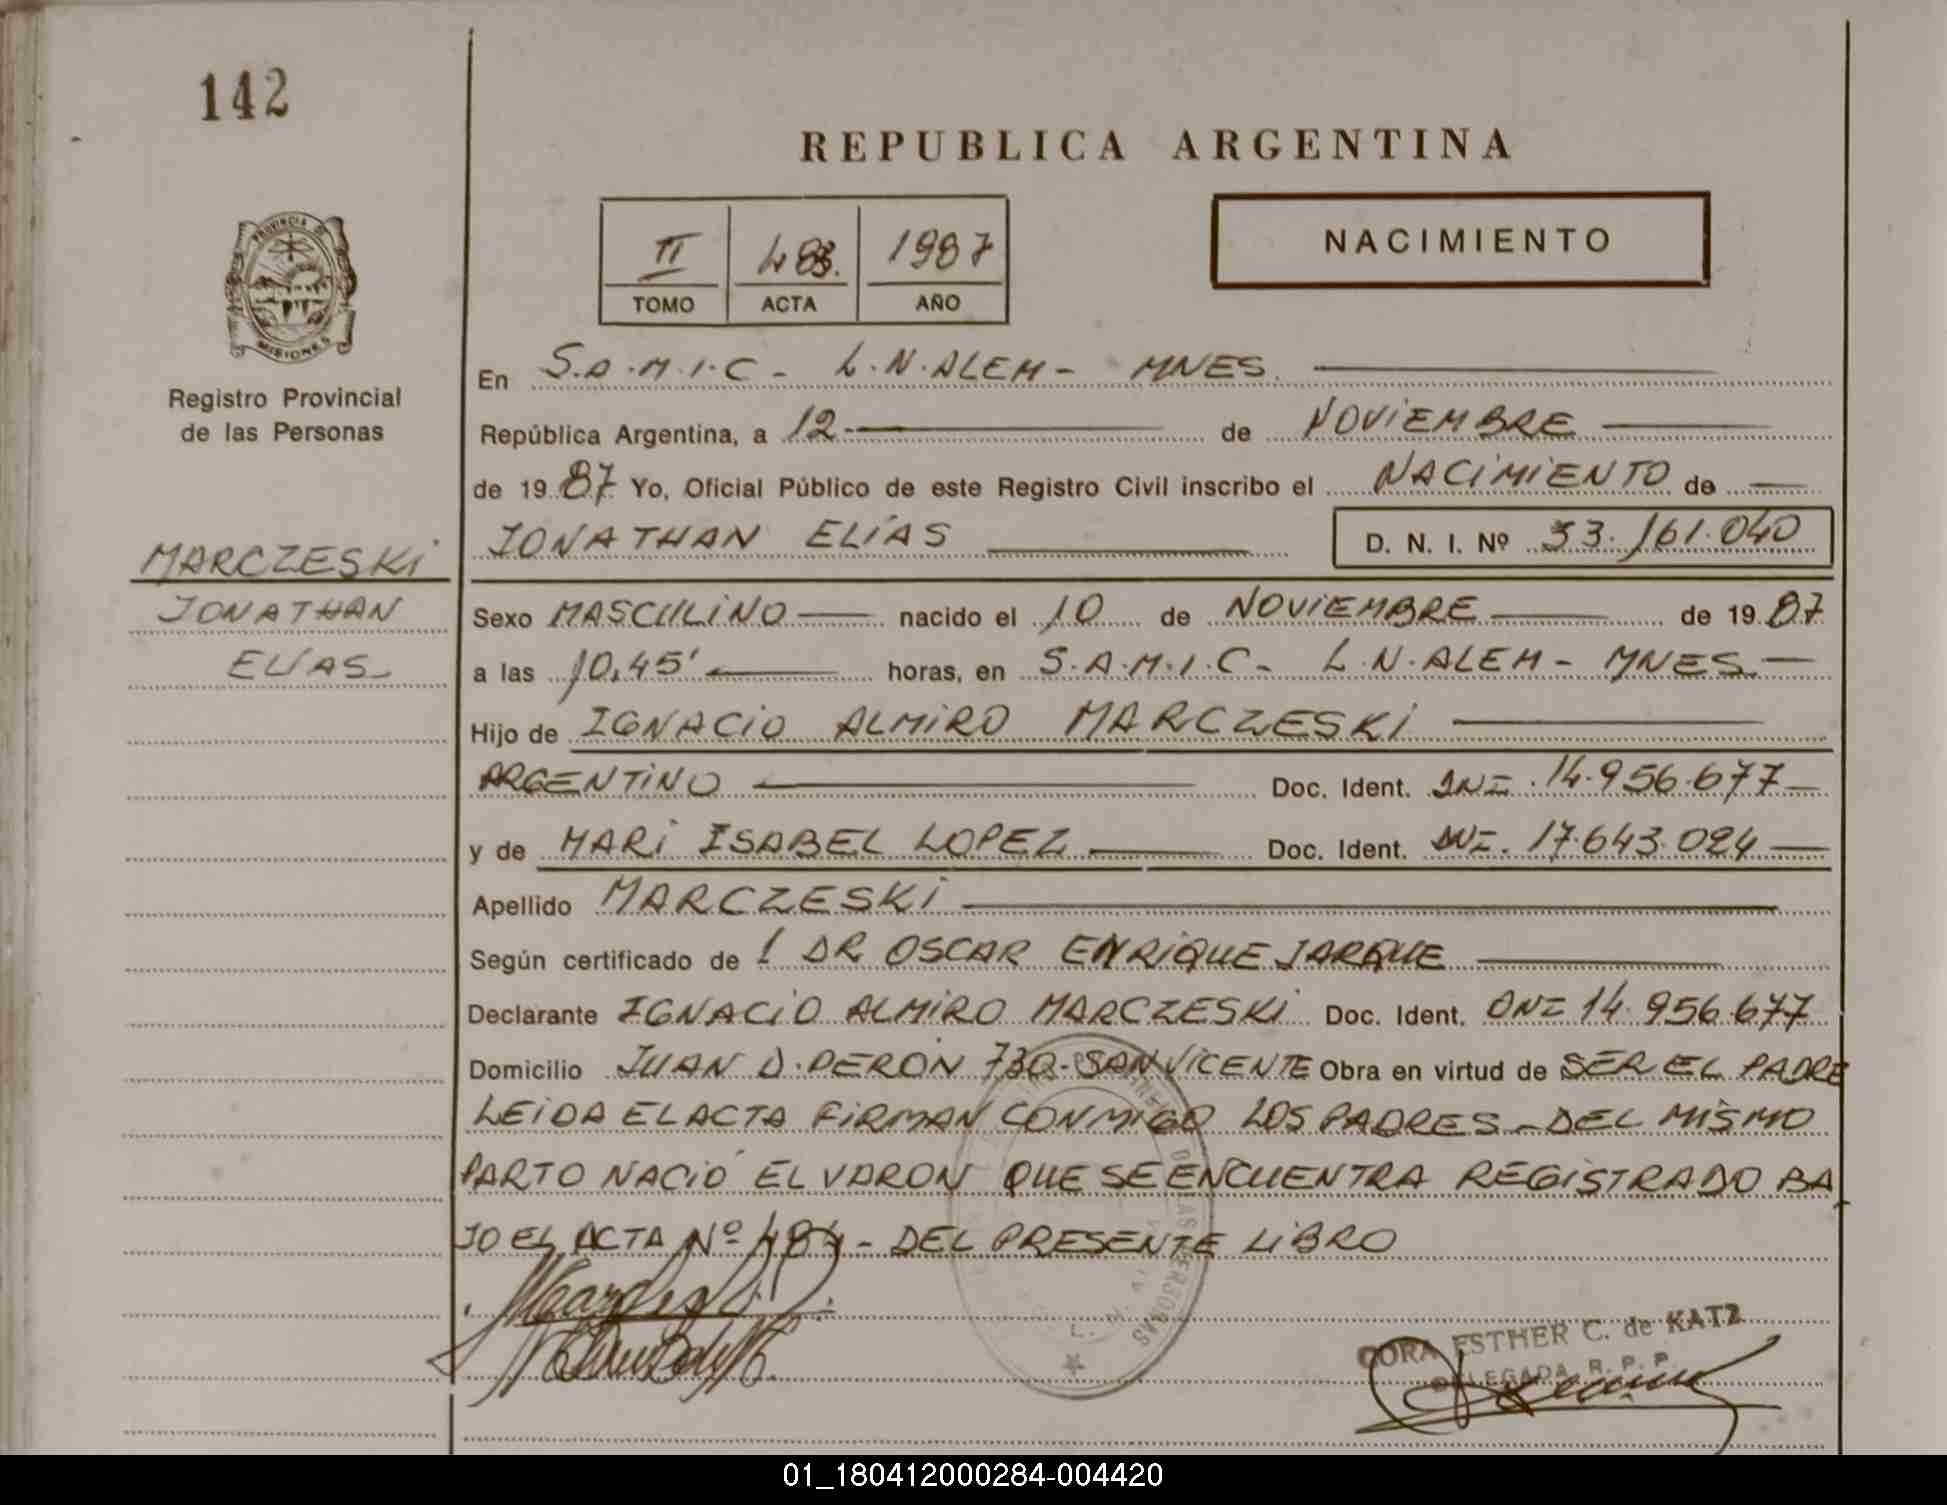 142
REPUBLICA ARGENTINA
II 483. 1987
TOMO ACTA AÑO
NACIMIENTO
PROVINCIA DE
MISIONES
Registro Provincial
de las Personas
MARCZESKI
JONATHAN
ELIAS
En S.A.M.I.C - L.N.ALEM - MNES.
República Argentina, a 12 de NOVIEMBRE
de 1987 Yo, Oficial Público de este Registro Civil inscribo el NACIMIENTO de
JONATHAN ELÍAS D. N. I. Nº 33.161.040
Sexo MASCULINO nacido el 10 de NOVIEMBRE de 1987
a las 10,45' horas, en S.A.M.I.C - L.N.ALEM - MNES.
Hijo de IGNACIO ALMIRO MARCZESKI
ARGENTINO Doc. Ident. 14.956.677
y de MARI ISABEL LOPEZ Doc. Ident. 17.643.024
Apellido MARCZESKI
Según certificado de 1 DR OSCAR ENRIQUE JARQUE
Declarante IGNACIO ALMIRO MARCZESKI Doc. Ident. 14.956.677
Domicilio JUAN D. PERON 730 - SAN VICENTE Obra en virtud de SER EL PADRE
LEIDA EL ACTA FIRMAN CONMIGO LOS PADRES - DEL MISMO
PARTO NACIÓ EL VARON QUE SE ENCUENTRA REGISTRADO BA
JO EL ACTA Nº 484 - DEL PRESENTE LIBRO
CORA ESTHER C. de KATZ
DELEGADA R. P. P.
01_180412000284-004420